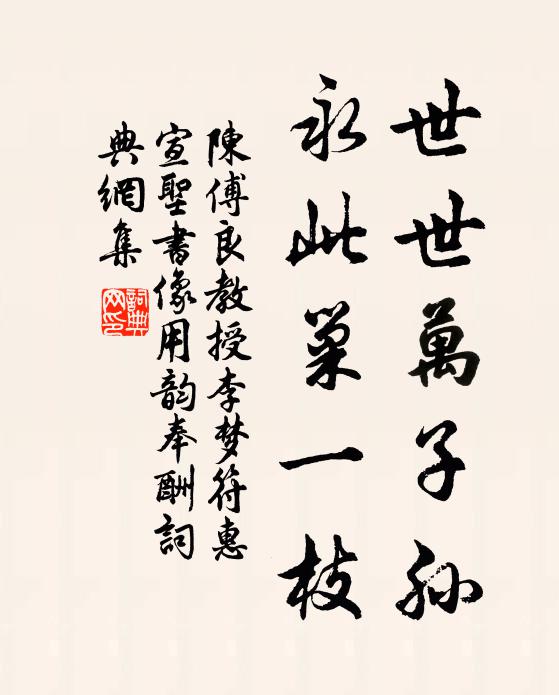 世世萬子孫
永此巢一枝
陳傅良教授李梦符惠
宣聖書像用韵奉酬詞
典網集
詞典
网印